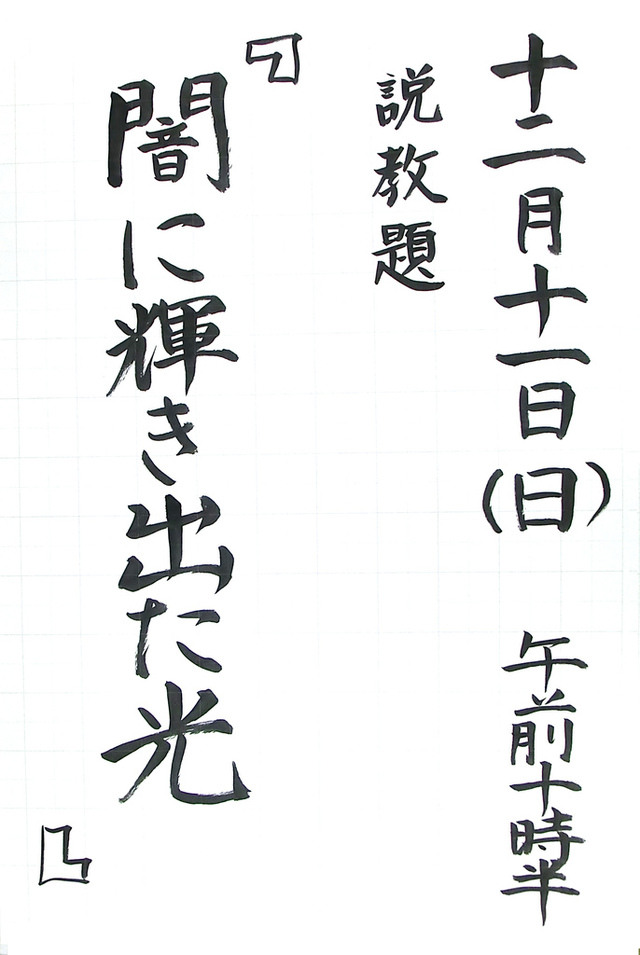 十二月十一日(日) 午前十時半
説教題
『闇に輝き出た光』